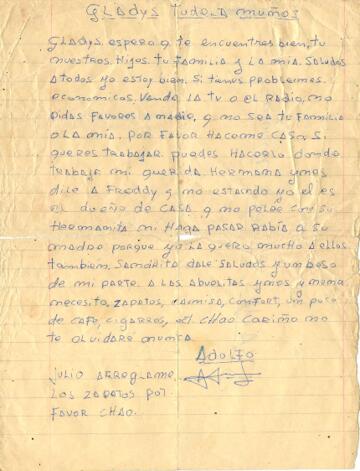 GLADYS TUDELA MUÑOS
GLADYS. espero q te encuentres bien, tu
nuestros Hijos. tu FAMILIA y LA MIA. SALUDOS
A todos yo estoy bien. Si tienes problemas
economicos. Vende LA TV o el RADIO, no
pidas FAVORES A NADIE, q no sea tu FAMILIA
o LA MIA. POR FAVOR HACEME CASO. Si
queres trabajar puedes HACERLO donde
trabaja mi querida. HERMANA ynes
dile A FREDDY q no estando yo el es
el dueño de CASA q no pelee con su
HERMANITA ni HAGA PASAR RABIA A su
madre porque yo LA quero mucho A ellos
tambien. SANDRITA DALE SALUDOS y un beso
de mi parte. A LAS ABUELITAS ynes y mema
necesito, ZAPATOS, CAMISA, CONFORT, un poco
de CAFE, CIGARROS, CHAO CARIÑO no
te olvidare nunca
ADOLFO
JULIO ARREGLAME
LOS ZAPATOS POR
FAVOR CHAO.